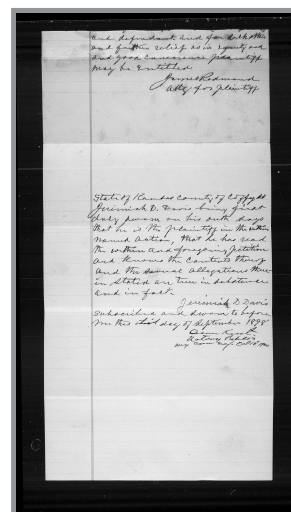 and defendant and for such other
and further relief as in equity and
and good conscience plaintiff
may be Entitled
James Redmond
Atty for plaintiff
State of Kansas County of
Jeremiah D. Davis being first
duly sworn on his oath says
that he is the plaintiff in the within
named action, that he has read
the within and foregoing petition
and knows the contents thereof
and the several allegations there
in stated are true in substance
and in fact.
Jeremiah D Davis
Subscribed and sworn to before
me this day of September 1898
Notary Public
my com exp. Oct